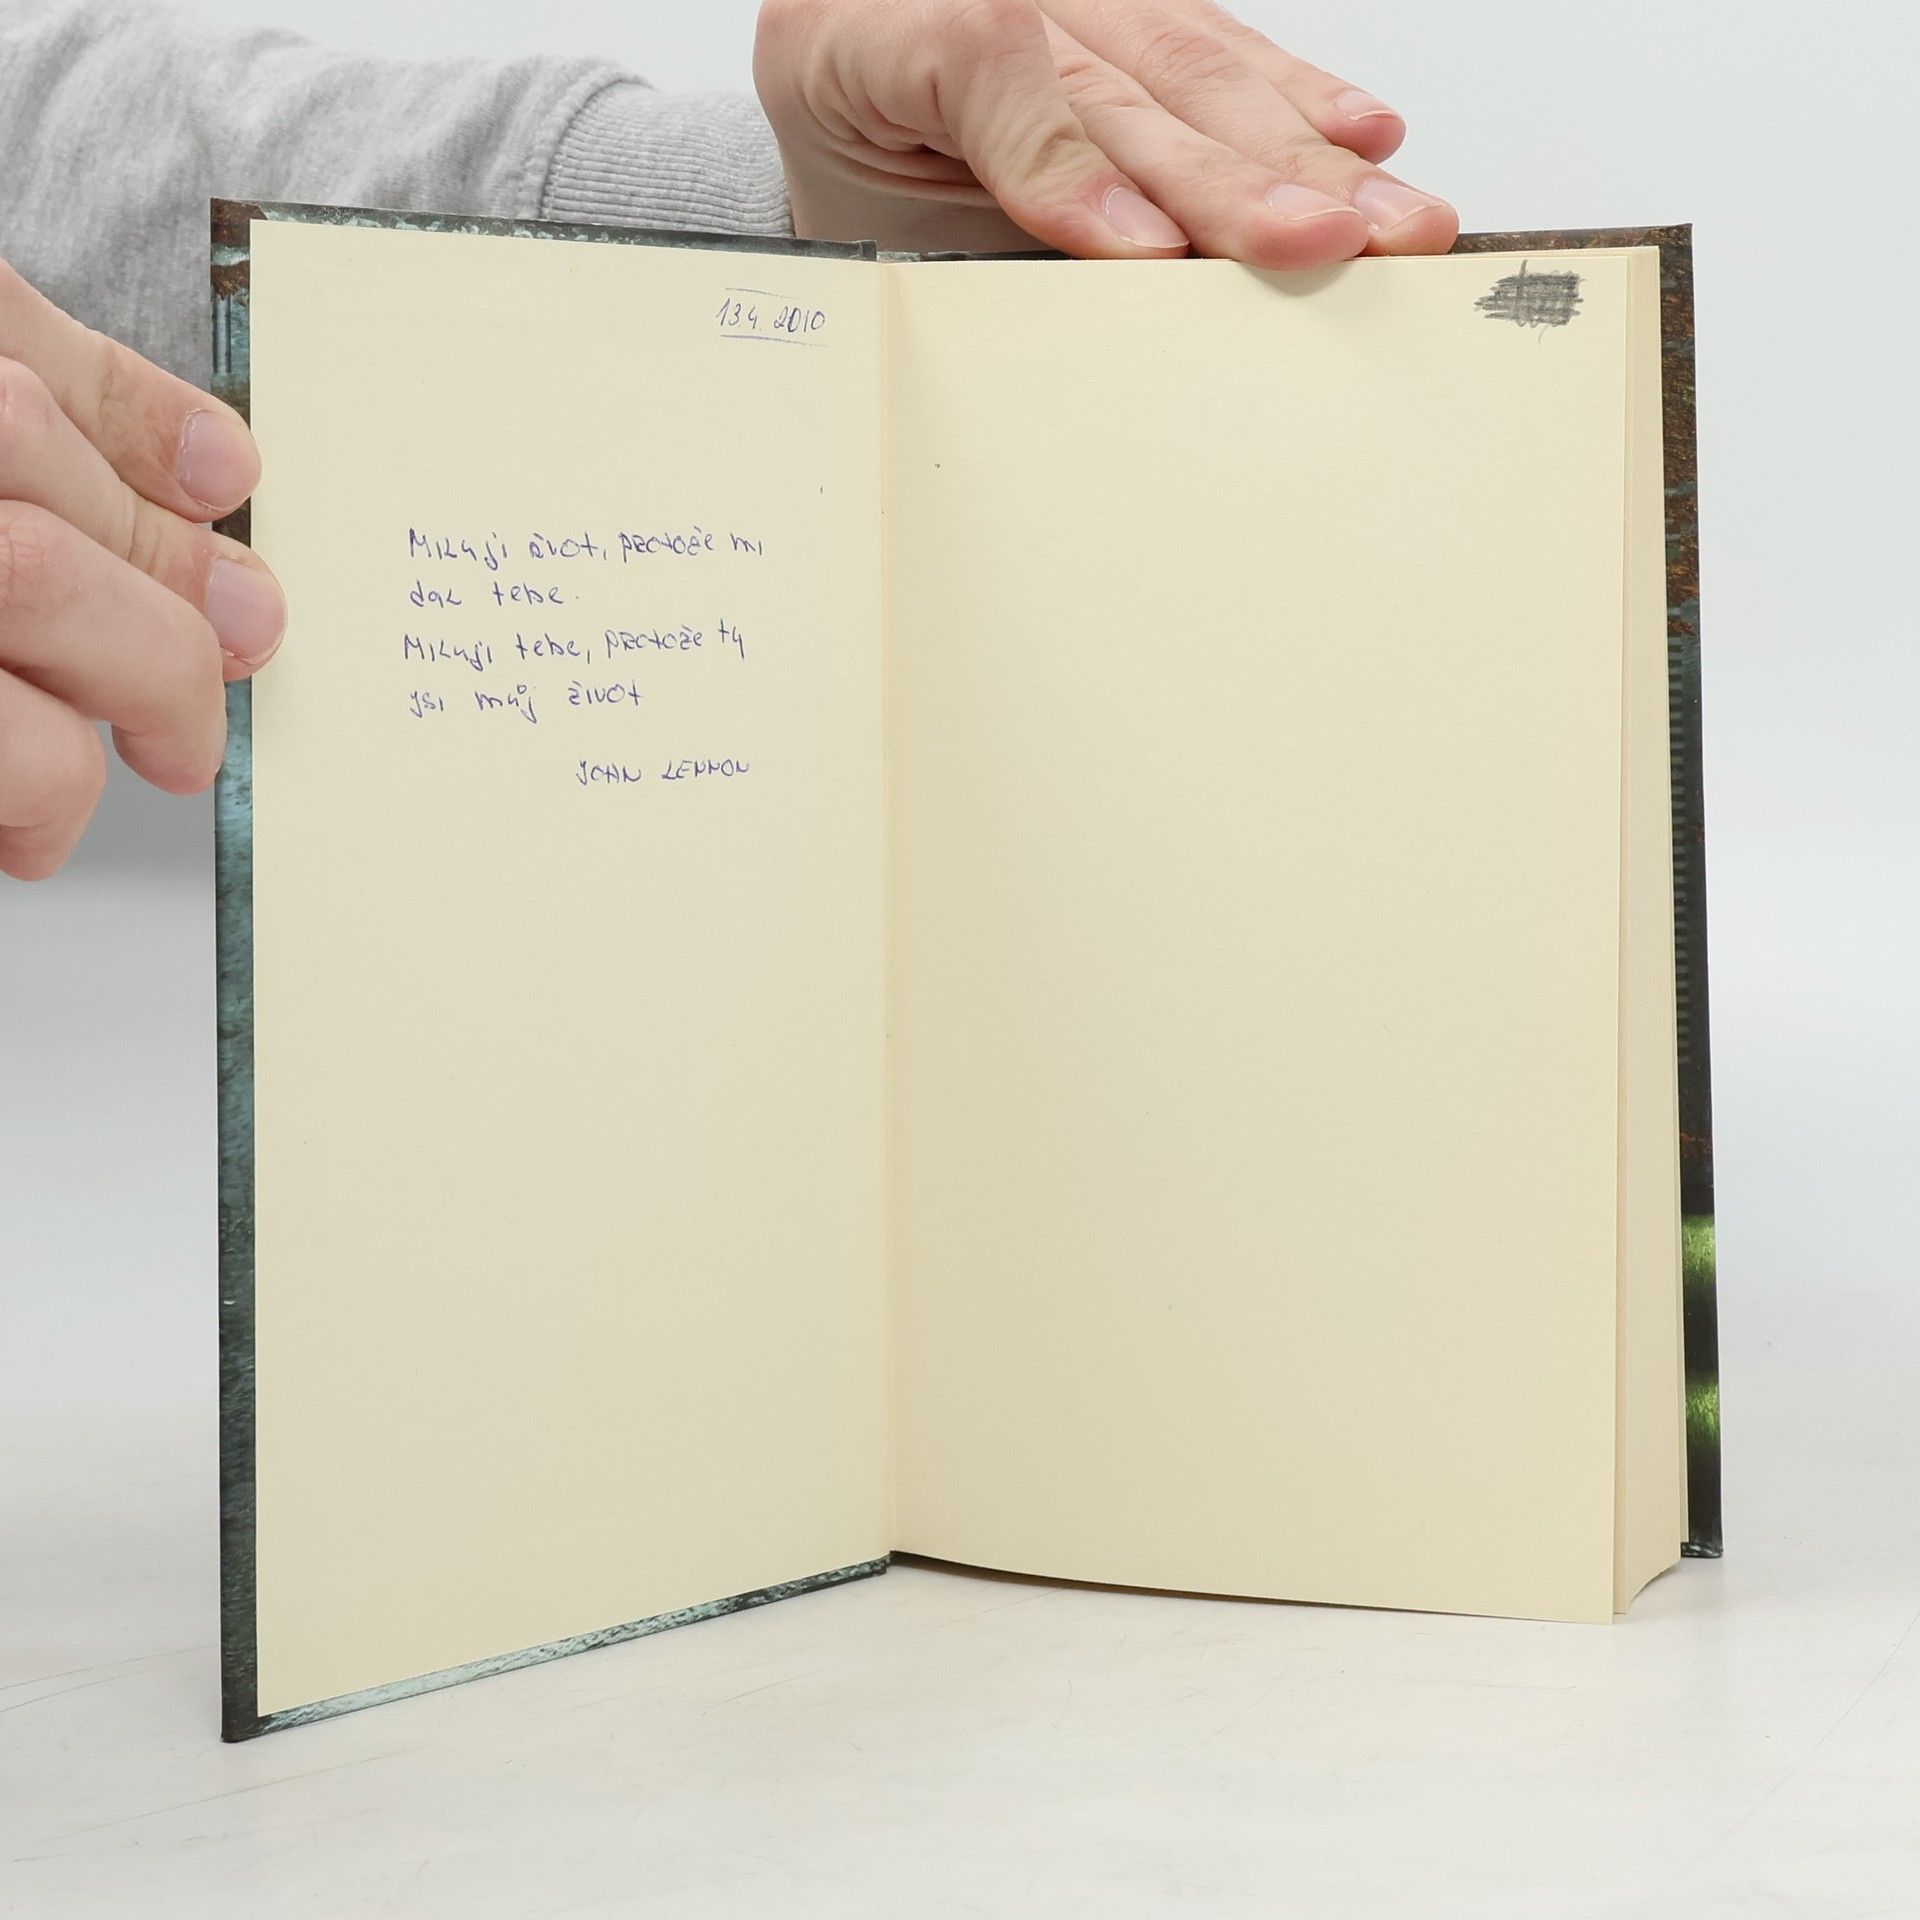 13.4. 2010
Miluji život, protože mi
dal tebe.
Miluji tebe, protože ty
jsi můj život
JOHN LENNON